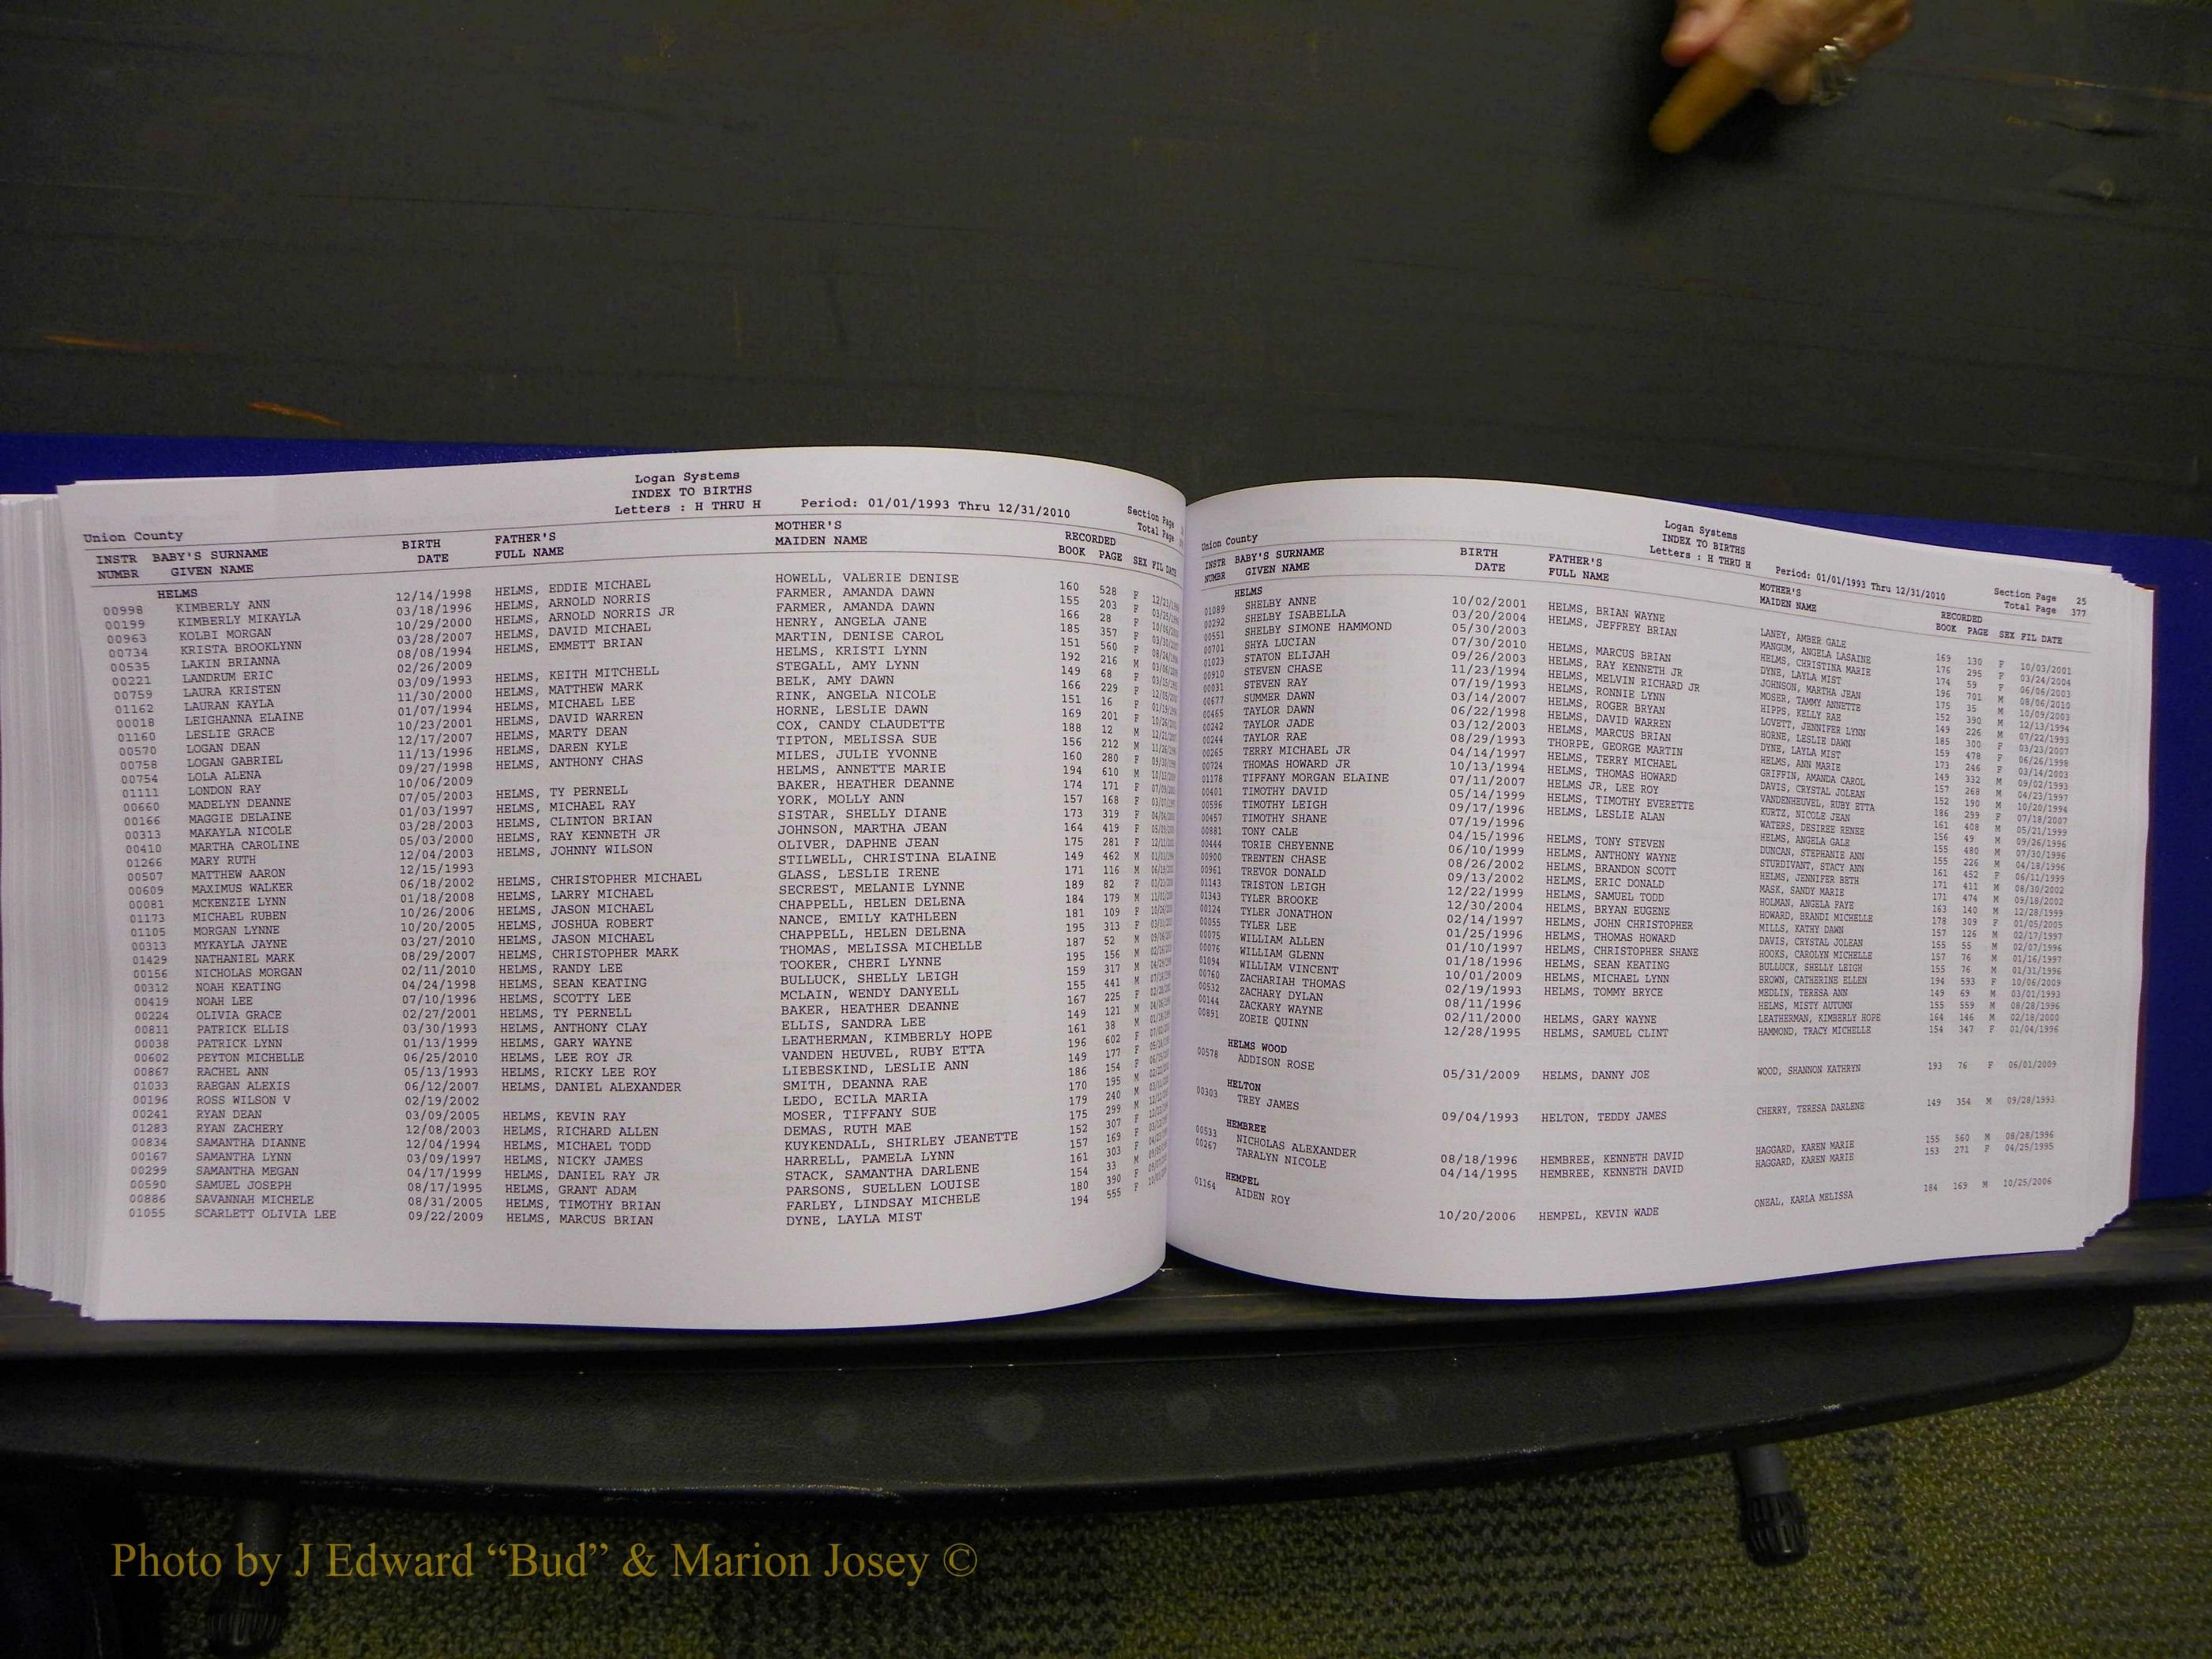 Logan Systems
INDEX TO BIRTHS
Letters : H THRU H Period: 01/01/1993 Thru 12/31/2010
Section Page
Total Page
Union County
INSTR BABY'S SURNAME BIRTH FATHER'S MOTHER'S RECORDED
NUMBR GIVEN NAME DATE FULL NAME MAIDEN NAME BOOK PAGE SEX FIL DATE
HELMS
00998 KIMBERLY ANN 12/14/1998 HELMS, EDDIE MICHAEL HOWELL, VALERIE DENISE 160 528 F
00199 KIMBERLY MIKAYLA 03/18/1996 HELMS, ARNOLD NORRIS FARMER, AMANDA DAWN 155 203 F
00963 KOLBI MORGAN 10/29/2000 HELMS, ARNOLD NORRIS JR FARMER, AMANDA DAWN 166 28 F
00734 KRISTA BROOKLYNN 03/28/2007 HELMS, DAVID MICHAEL HENRY, ANGELA JANE 185 357 F
00535 LAKIN BRIANNA 08/08/1994 HELMS, EMMETT BRIAN MARTIN, DENISE CAROL 151 560 F
00221 LANDRUM ERIC 02/26/2009 HELMS, KRISTI LYNN 192 216 M
00759 LAURA KRISTEN 03/09/1993 HELMS, KEITH MITCHELL STEGALL, AMY LYNN 149 68 F
01162 LAURAN KAYLA 11/30/2000 HELMS, MATTHEW MARK BELK, AMY DAWN 166 229 F
00018 LEIGHANNA ELAINE 01/07/1994 HELMS, MICHAEL LEE RINK, ANGELA NICOLE 151 16 F
01160 LESLIE GRACE 10/23/2001 HELMS, DAVID WARREN HORNE, LESLIE DAWN 169 201 F
00570 LOGAN DEAN 12/17/2007 HELMS, MARTY DEAN COX, CANDY CLAUDETTE 188 12 M
00758 LOGAN GABRIEL 11/13/1996 HELMS, DAREN KYLE TIPTON, MELISSA SUE 156 212 M
00754 LOLA ALENA 09/27/1998 HELMS, ANTHONY CHAS MILES, JULIE YVONNE 160 280 F
01111 LONDON RAY 10/06/2009 HELMS, ANNETTE MARIE 194 610 M
00660 MADELYN DEANNE 07/05/2003 HELMS, TY PERNELL BAKER, HEATHER DEANNE 174 171 F
00166 MAGGIE DELAINE 01/03/1997 HELMS, MICHAEL RAY YORK, MOLLY ANN 157 168 F
00313 MAKAYLA NICOLE 03/28/2003 HELMS, CLINTON BRIAN SISTAR, SHELLY DIANE 173 319 F
00410 MARTHA CAROLINE 05/03/2000 HELMS, RAY KENNETH JR JOHNSON, MARTHA JEAN 164 419 F
01266 MARY RUTH 12/04/2003 HELMS, JOHNNY WILSON OLIVER, DAPHNE JEAN 175 281 F
00507 MATTHEW AARON 12/15/1993 STILWELL, CHRISTINA ELAINE 149 462 M
00609 MAXIMUS WALKER 06/18/2002 HELMS, CHRISTOPHER MICHAEL GLASS, LESLIE IRENE 171 116 M
00081 MCKENZIE LYNN 01/18/2008 HELMS, LARRY MICHAEL SECREST, MELANIE LYNNE 189 82 F
01173 MICHAEL RUBEN 10/26/2006 HELMS, JASON MICHAEL CHAPPELL, HELEN DELENA 184 179 M
01105 MORGAN LYNNE 10/20/2005 HELMS, JOSHUA ROBERT NANCE, EMILY KATHLEEN 181 109 F
00313 MYKAYLA JAYNE 03/27/2010 HELMS, JASON MICHAEL CHAPPELL, HELEN DELENA 195 313 F
01429 NATHANIEL MARK 08/29/2007 HELMS, CHRISTOPHER MARK THOMAS, MELISSA MICHELLE 187 52 M
00156 NICHOLAS MORGAN 02/11/2010 HELMS, RANDY LEE TOOKER, CHERI LYNNE 195 156 M
00312 NOAH KEATING 04/24/1998 HELMS, SEAN KEATING BULLUCK, SHELLY LEIGH 159 317 M
00419 NOAH LEE 07/10/1996 HELMS, SCOTTY LEE MCLAIN, WENDY DANYELL 155 441 M
00224 OLIVIA GRACE 02/27/2001 HELMS, TY PERNELL BAKER, HEATHER DEANNE 167 225 F
00811 PATRICK ELLIS 03/30/1993 HELMS, ANTHONY CLAY ELLIS, SANDRA LEE 149 121 M
00038 PATRICK LYNN 01/13/1999 HELMS, GARY WAYNE LEATHERMAN, KIMBERLY HOPE 161 38 M
00602 PEYTON MICHELLE 06/25/2010 HELMS, LEE ROY JR VANDEN HEUVEL, RUBY ETTA 196 602 F
00867 RACHEL ANN 05/13/1993 HELMS, RICKY LEE ROY LIEBESKIND, LESLIE ANN 149 177 F
01033 RAEGAN ALEXIS 06/12/2007 HELMS, DANIEL ALEXANDER SMITH, DEANNA RAE 186 154 F
00196 ROSS WILSON V 02/19/2002 LEDO, ECILA MARIA 170 195 M
00241 RYAN DEAN 03/09/2005 HELMS, KEVIN RAY MOSER, TIFFANY SUE 179 240 M
01283 RYAN ZACHERY 12/08/2003 HELMS, RICHARD ALLEN DEMAS, RUTH MAE 175 299 M
00834 SAMANTHA DIANNE 12/04/1994 HELMS, MICHAEL TODD KUYKENDALL, SHIRLEY JEANETTE 152 307 F
00167 SAMANTHA LYNN 03/09/1997 HELMS, NICKY JAMES HARRELL, PAMELA LYNN 157 169 F
00299 SAMANTHA MEGAN 04/17/1999 HELMS, DANIEL RAY JR STACK, SAMANTHA DARLENE 161 303 F
00590 SAMUEL JOSEPH 08/17/1995 HELMS, GRANT ADAM PARSONS, SUELLEN LOUISE 154 33 M
00886 SAVANNAH MICHELE 08/31/2005 HELMS, TIMOTHY BRIAN FARLEY, LINDSAY MICHELE 180 390 F
01055 SCARLETT OLIVIA LEE 09/22/2009 HELMS, MARCUS BRIAN DYNE, LAYLA MIST 194 555 F
Logan Systems
INDEX TO BIRTHS
Letters : H THRU H Period: 01/01/1993 Thru 12/31/2010
Section Page 25
Total Page 377
Union County
INSTR BABY'S SURNAME BIRTH FATHER'S MOTHER'S RECORDED
NUMBR GIVEN NAME DATE FULL NAME MAIDEN NAME BOOK PAGE SEX FIL DATE
HELMS
01089 SHELBY ANNE 10/02/2001 HELMS, BRIAN WAYNE LANEY, AMBER GALE 169 130 F 10/03/2001
00292 SHELBY ISABELLA 03/20/2004 HELMS, JEFFREY BRIAN MANGUM, ANGELA LASAINE 176 295 F 03/24/2004
00551 SHELBY SIMONE HAMMOND 05/30/2003 HELMS, CHRISTINA MARIE 174 59 F 06/06/2003
00701 SHYA LUCIAN 07/30/2010 HELMS, MARCUS BRIAN DYNE, LAYLA MIST 196 701 M 08/06/2010
01023 STATON ELIJAH 09/26/2003 HELMS, RAY KENNETH JR JOHNSON, MARTHA JEAN 175 35 M 10/09/2003
00910 STEVEN CHASE 11/23/1994 HELMS, MELVIN RICHARD JR MOSER, TAMMY ANNETTE 152 390 M 12/13/1994
00031 STEVEN RAY 07/19/1993 HELMS, RONNIE LYNN HIPPS, KELLY RAE 149 226 M 07/22/1993
00677 SUMMER DAWN 03/14/2007 HELMS, ROGER BRYAN LOVETT, JENNIFER LYNN 185 300 F 03/23/2007
00465 TAYLOR DAWN 06/22/1998 HELMS, DAVID WARREN HORNE, LESLIE DAWN 159 478 F 06/26/1998
00242 TAYLOR JADE 03/12/2003 HELMS, MARCUS BRIAN DYNE, LAYLA MIST 173 246 F 03/14/2003
00244 TAYLOR RAE 08/29/1993 THORPE, GEORGE MARTIN HELMS, ANN MARIE 149 332 M 09/02/1993
00265 TERRY MICHAEL JR 04/14/1997 HELMS, TERRY MICHAEL GRIFFIN, AMANDA CAROL 157 268 M 04/23/1997
00724 THOMAS HOWARD JR 10/13/1994 HELMS, THOMAS HOWARD DAVIS, CRYSTAL JOLEAN 152 190 M 10/20/1994
01178 TIFFANY MORGAN ELAINE 07/11/2007 HELMS JR, LEE ROY VANDENHEUVEL, RUBY ETTA 186 299 F 07/18/2007
00401 TIMOTHY DAVID 05/14/1999 HELMS, TIMOTHY EVERETTE KURTZ, NICOLE JEAN 161 408 M 05/21/1999
00596 TIMOTHY LEIGH 09/17/1996 HELMS, LESLIE ALAN WATERS, DESIREE RENEE 156 49 M 09/26/1996
00457 TIMOTHY SHANE 07/19/1996 HELMS, ANGELA GALE 155 480 M 07/30/1996
00881 TONY CALE 04/15/1996 HELMS, TONY STEVEN DUNCAN, STEPHANIE ANN 155 226 M 04/18/1996
00444 TORIE CHEYENNE 06/10/1999 HELMS, ANTHONY WAYNE STURDIVANT, STACY ANN 161 452 F 06/11/1999
00900 TRENTEN CHASE 08/26/2002 HELMS, BRANDON SCOTT HELMS, JENNIFER BETH 171 411 M 08/30/2002
00961 TREVOR DONALD 09/13/2002 HELMS, ERIC DONALD MASK, SANDY MARIE 171 474 M 09/18/2002
01143 TRISTON LEIGH 12/22/1999 HELMS, SAMUEL TODD HOLMAN, ANGELA FAYE 163 140 M 12/28/1999
01343 TYLER BROOKE 12/30/2004 HELMS, BRYAN EUGENE HOWARD, BRANDI MICHELLE 178 309 F 01/05/2005
00124 TYLER JONATHON 02/14/1997 HELMS, JOHN CHRISTOPHER MILLS, KATHY DAWN 157 126 M 02/17/1997
00055 TYLER LEE 01/25/1996 HELMS, THOMAS HOWARD DAVIS, CRYSTAL JOLEAN 155 55 M 02/07/1996
00075 WILLIAM ALLEN 01/10/1997 HELMS, CHRISTOPHER SHANE HOOKS, CAROLYN MICHELLE 157 76 M 01/16/1997
00076 WILLIAM GLENN 01/18/1996 HELMS, SEAN KEATING BULLUCK, SHELLY LEIGH 155 76 M 01/31/1996
01094 WILLIAM VINCENT 10/01/2009 HELMS, MICHAEL LYNN BROWN, CATHERINE ELLEN 194 593 F 10/06/2009
00760 ZACHARIAH THOMAS 02/19/1993 HELMS, TOMMY BRYCE MEDLIN, TERESA ANN 149 69 M 03/01/1993
00532 ZACHARY DYLAN 08/11/1996 HELMS, MISTY AUTUMN 155 559 M 08/28/1996
00144 ZACKARY WAYNE 02/11/2000 HELMS, GARY WAYNE LEATHERMAN, KIMBERLY HOPE 164 146 M 02/18/2000
00891 ZOEIE QUINN 12/28/1995 HELMS, SAMUEL CLINT HAMMOND, TRACY MICHELLE 154 347 F 01/04/1996
HELMS WOOD
00578 ADDISON ROSE 05/31/2009 HELMS, DANNY JOE WOOD, SHANNON KATHRYN 193 76 F 06/01/2009
HELTON
00303 TREY JAMES 09/04/1993 HELTON, TEDDY JAMES CHERRY, TERESA DARLENE 149 354 M 09/28/1993
HEMBREE
00533 NICHOLAS ALEXANDER 08/18/1996 HEMBREE, KENNETH DAVID HAGGARD, KAREN MARIE 155 560 M 08/28/1996
00267 TARALYN NICOLE 04/14/1995 HEMBREE, KENNETH DAVID HAGGARD, KAREN MARIE 153 271 F 04/25/1995
HEMPEL
01164 AIDEN ROY 10/20/2006 HEMPEL, KEVIN WADE ONEAL, KARLA MELISSA 184 169 M 10/25/2006
Photo by J Edward “Bud” & Marion Josey ©